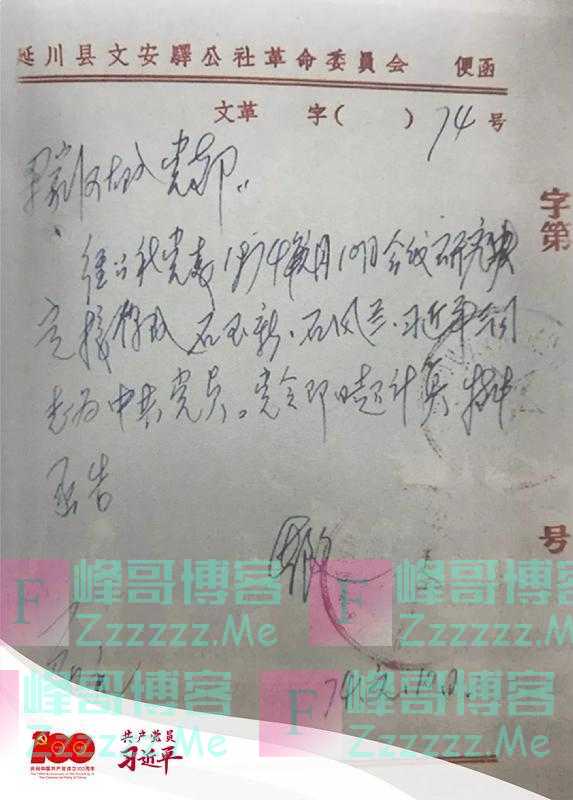 延川县文安驛公社革命委員会 便函
文革 字( ) 74 号
党支部:
经公社党委1974年 月10日会议研究决
定接收 石玉新、石凤兰、习近平 同
志为中共党员。党令即日起计算 特此
函告
字第
号
74.元.10日.
F 峰哥博客
Zzzzzz.Me
F 峰哥博客
Zzzzzz.Me
F 峰哥博客
Zzzzzz.Me
F 峰哥博客
Zzzzzz.Me
100
庆祝中国共产党成立100周年
The 100th Anniversary of the Founding of
The Communist Party of China
共产党员
习近平